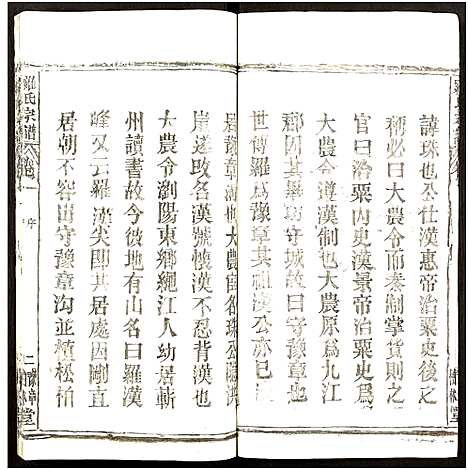 諱珠也公仕漢惠帝治粟史後之
稱必曰大農令而秦制掌貨則之
官曰治粟內史漢景帝治粟史爲
大農令此漢制也大農原爲九江
郡因其守城故曰守豫章而
世傳羅爲豫章其祖漢公亦已
居豫章
崖遂改名漢號懷漢不忍背漢也
大農令瀏陽東鄉繩江人幼居蘄
州讀書故今彼地有山名曰羅漢
峰又云羅漢尖即其居處因剛直
居朝不容出守豫章沟並植松柏
羅氏宗譜 卷一 序 二
豫章堂